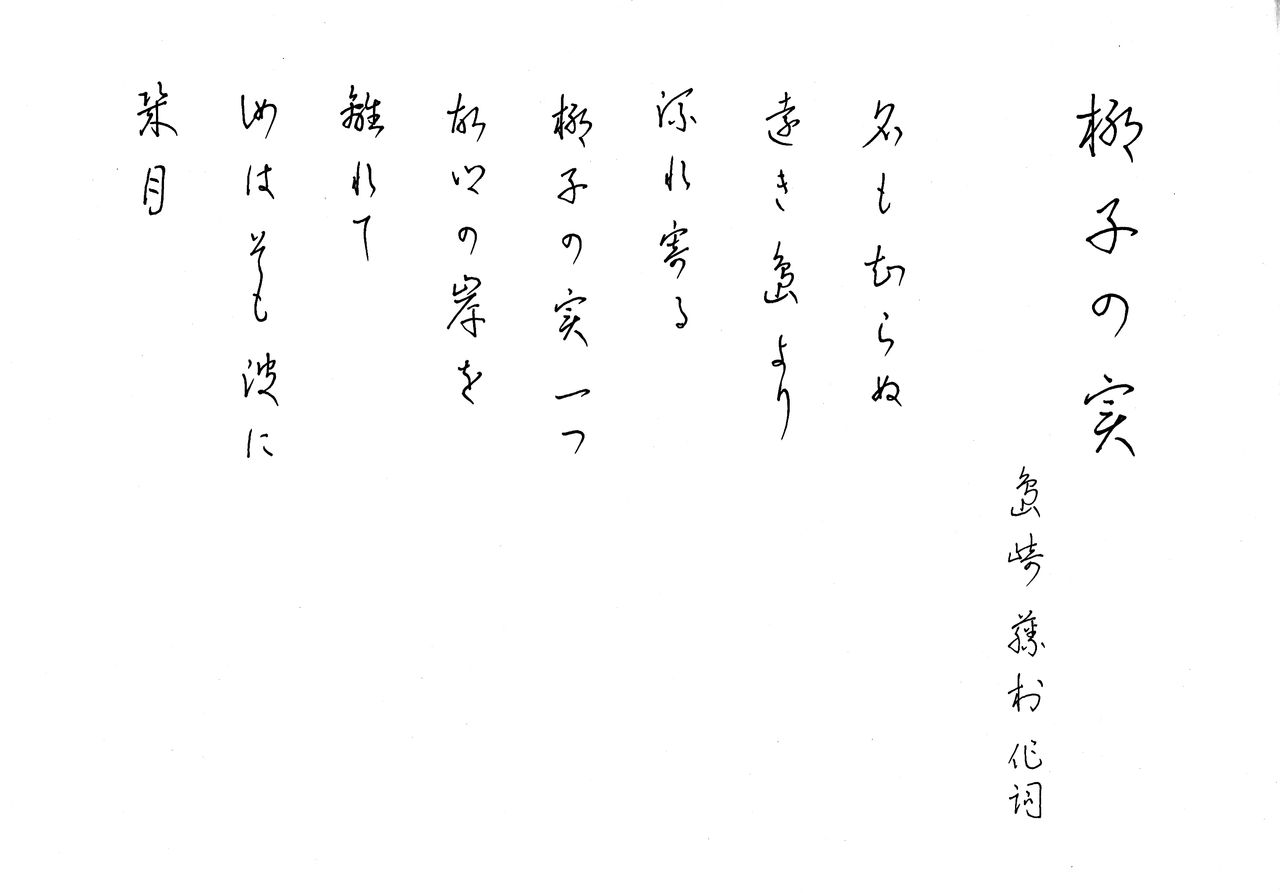 椰子の実
島崎藤村作詞
名も知らぬ
遠き島より
流れ寄る
椰子の実一つ
故郷の岸を
離れて
汝はそも波に
幾月